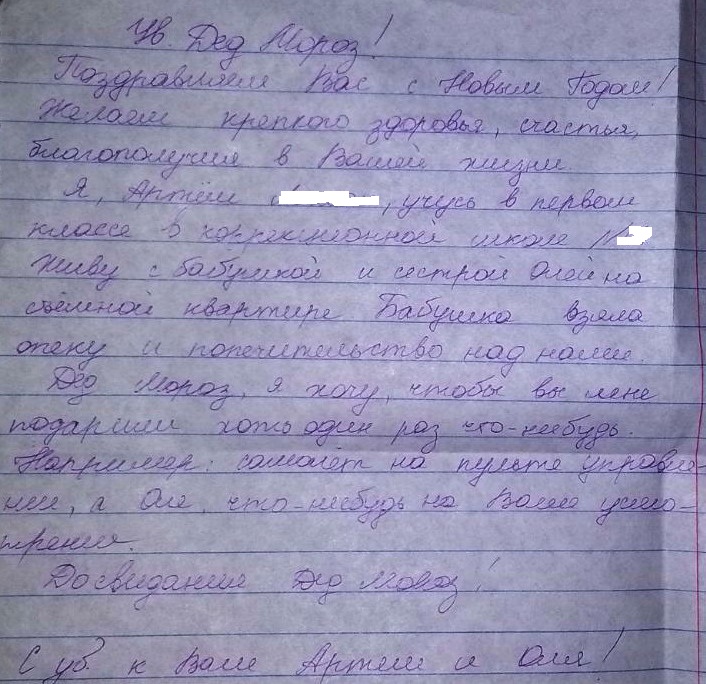 Ув. Дед Мороз!
Поздравляем Вас с Новым Годом!
Желаем крепкого здоровья, счастья,
благополучия в Вашей жизни.
Я, Артём , учусь в первом
классе в коррекционной школе №
Живу с бабушкой и сестрой Олей на
съёмной квартире Бабушка взяла
опеку и попечительство над нами.
Дед Мороз, я хочу, чтобы вы мне
подарили хоть один раз что-нибудь.
Например: самолёт на пульте управле-
нии, а Оле, что-нибудь на Ваше усмо-
трения.
Досвидания Дед Мороз!
С ув. к Вам Артем и Оля!